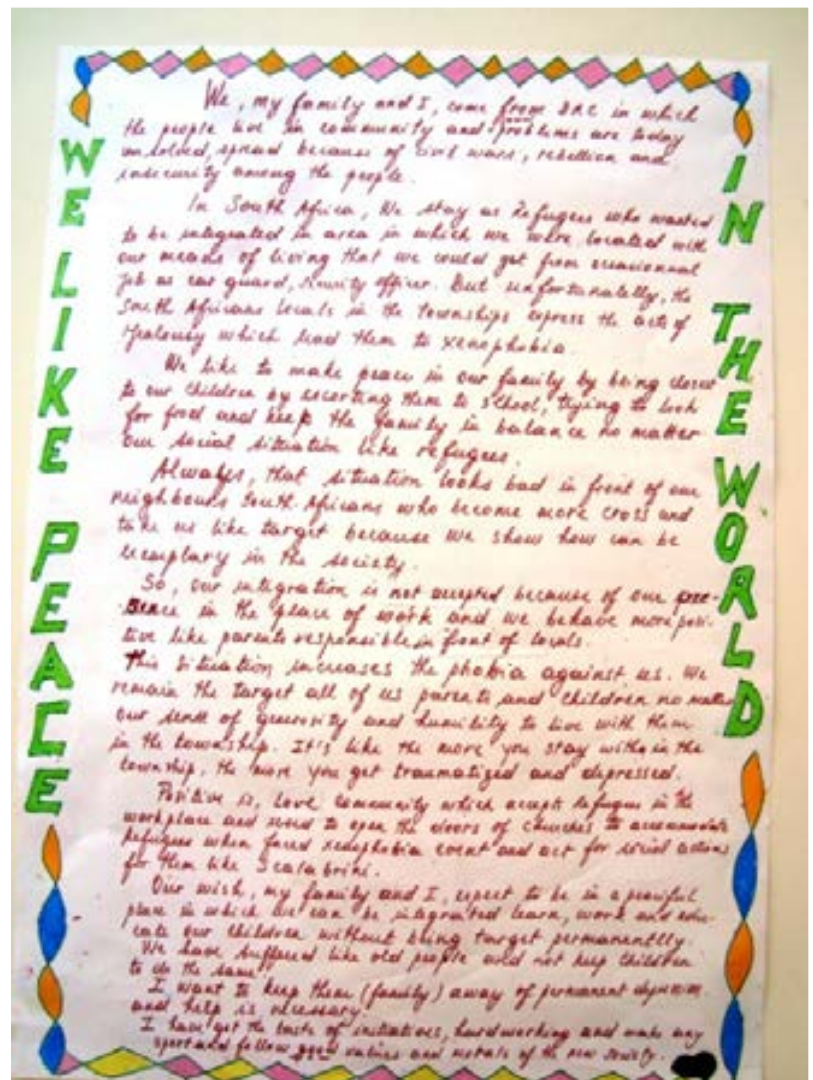 WE LIKE PEACE
We, my family and I, come from DRC in which
the people live in community and problems are today
unsolved, spread because of civil wars, rebellion and
insecurity among the people.
In South Africa, We stay as Refugees who wanted
to be integrated in area in which we were located with
our means of living that we could get from
job as car guard, security officer. But unfortunatelly, the
South Africans locals in the townships express the acts of
which lead them to xenophobia.
We like to make peace in our family by being closer
to our children by escorting them to school, trying to look
for food and keep the family in balance no matter
our social situation like refugees.
Always, that situation looks bad in front of our
neighbours South Africans who become more cross and
take us like target because we show how can be
exemplary in the society.
So, our integration is not accepted because of our
in the place of work and we behave more posi-
tive like parents responsible in front of locals.
This situation increases the phobia against us. We
remain the target all of us parents and children no matter
our sense of generosity and humility to live with them
in the township. It's like the more you stay in the
township, the more you get traumatized and depressed.
Positive is, love community which accepts refugees in the
workplace and to open the doors of churches to accommodate
Refugees when faced xenophobia event and act for social actions
for them like Scalabrini.
Our wish, my family and I, expect to be in a
place in which we can be integrated learn, work and edu-
cate our children without being target permanentlly.
We have suffered like old people not keep children
to do the same
I want to keep them (family) away of permanent
and help is necessary.
I have get the taste of initiatives, hardworking and make any
sport and follow good values and morals of the new society.
IN THE WORLD